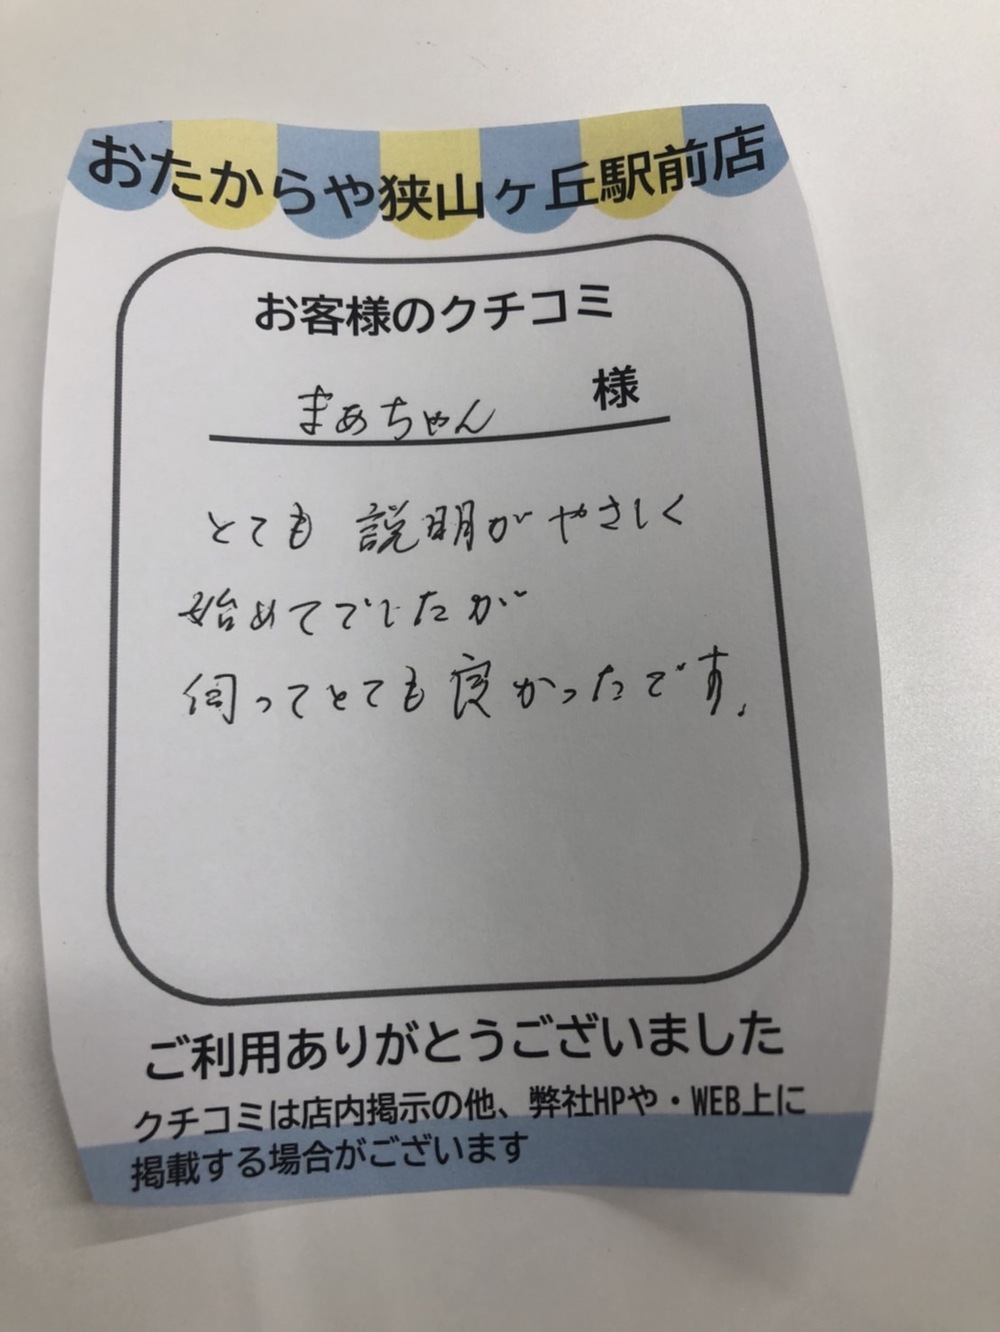 おたからや狭山ヶ丘駅前店
お客様のクチコミ
まぁちゃん 様
とても 説明がやさしく
始めてでしたが
伺ってとても良かったです.
ご利用ありがとうございました
クチコミは店内掲示の他、弊社HPや・WEB上に
掲載する場合がございます